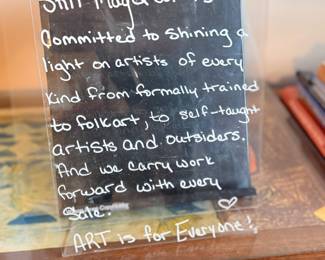 Committed to shining a
light on artists of every
kind from formally trained
to folkart, to self-taught
artists and outsiders.
And we carry work
forward with every
Sale.
ART is for Everyone!